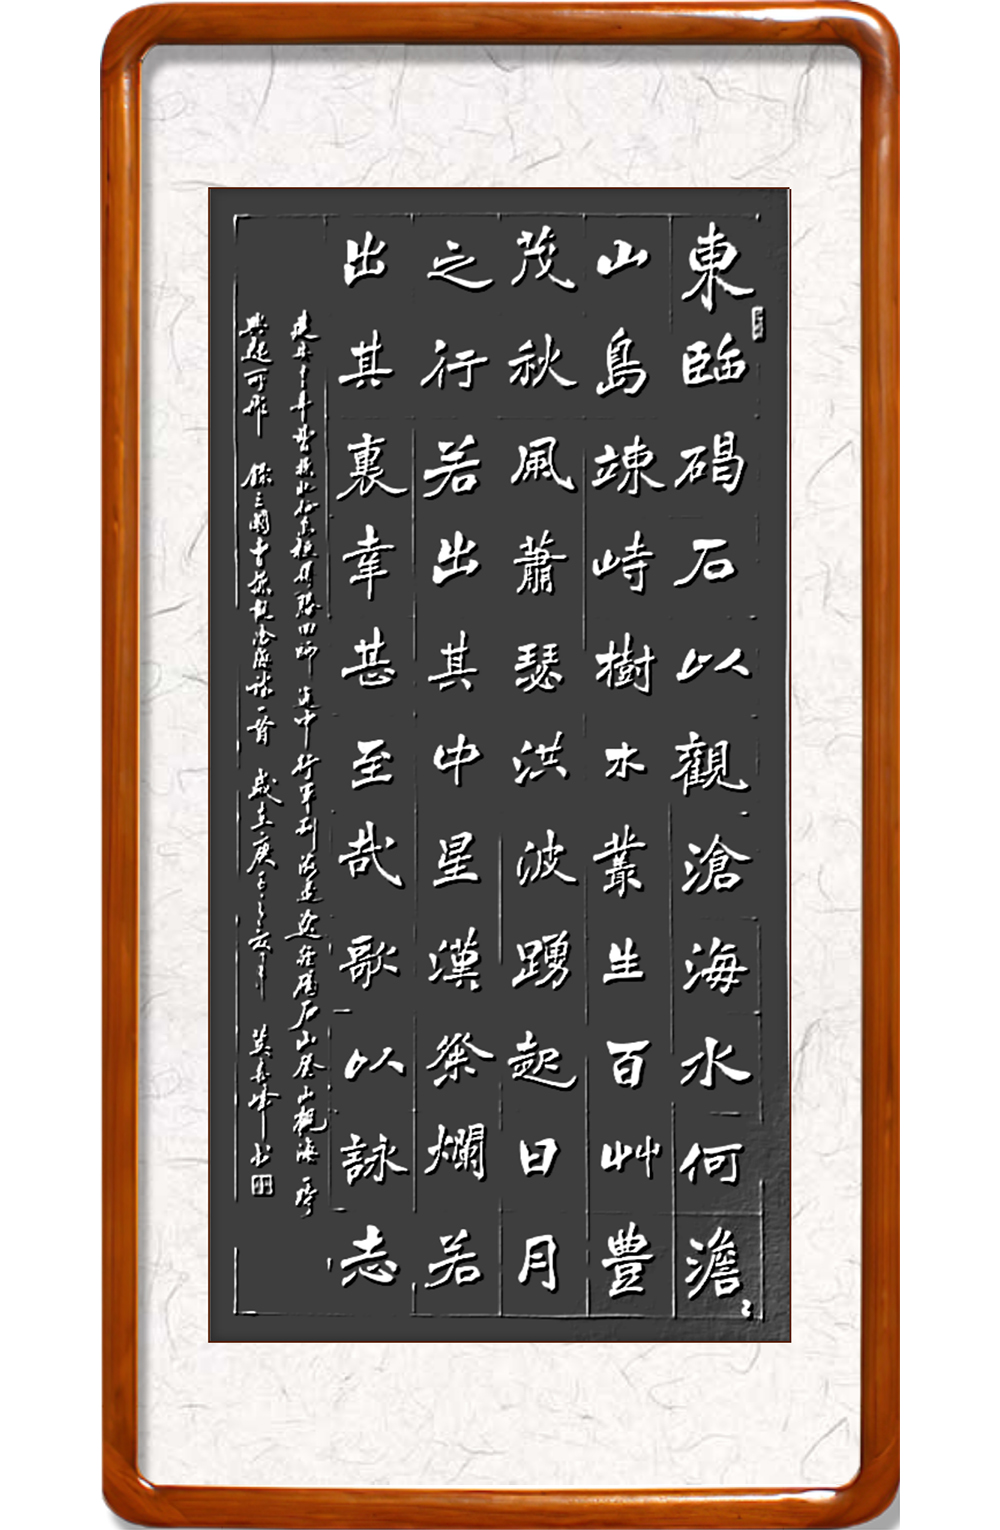 東臨碣石以觀滄海水何澹〻
山島竦峙樹木叢生百艸豐
茂秋風蕭瑟洪波踴起日月
之行若出其中星漢粲爛若
出其裏幸甚至哉歌以詠志
建安十二年曹操北征烏桓得勝回師途中行軍到海邊途經碣石山登山觀海一時
興起所作 錄三國曹操觀滄海詩一首 歲在庚子之